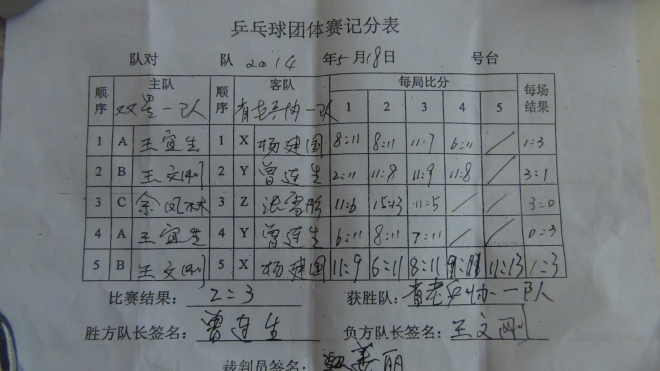 乒乓球团体赛记分表
队对 队 2014 年5月18日 号台
顺序 主队 双星一队 顺序 客队 省老乒协一队 每局比分 1 2 3 4 5 每场结果
1 A 王宜生 1 X 杨建国 8:11 8:11 11:7 6:11 / 1:3
2 B 王文刚 2 Y 曾连生 2:11 11:8 11:9 11:8 / 3:1
3 C 余凤林 3 Z 11:6 15:13 11:5 / / 3:0
4 A 王宜生 4 Y 曾连生 6:11 8:11 7:11 / / 0:3
5 B 王文刚 5 X 杨建国 11:9 6:11 8:11 11:13 1:3
比赛结果: 2:3 获胜队: 省老乒协一队
胜方队长签名: 曾连生 负方队长签名: 王文刚
裁判员签名: 丽